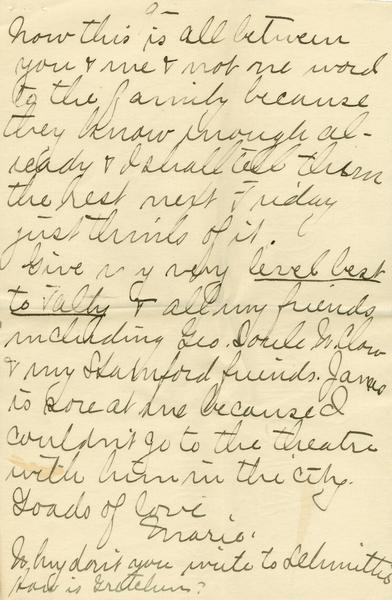 Now this is all between
you & me & not one word
to the family because
they know enough al-
ready & I shall tell them
the rest next Friday
just think of it.
Give my very level best
to Tally & all my friends
including Geo,
& my Stamford friends. James
is sore at me because I
couldn't go to the theatre
with him in the city.
Loads of love
Mario.
Why don't you write to Schmittie
How is Gretchen?